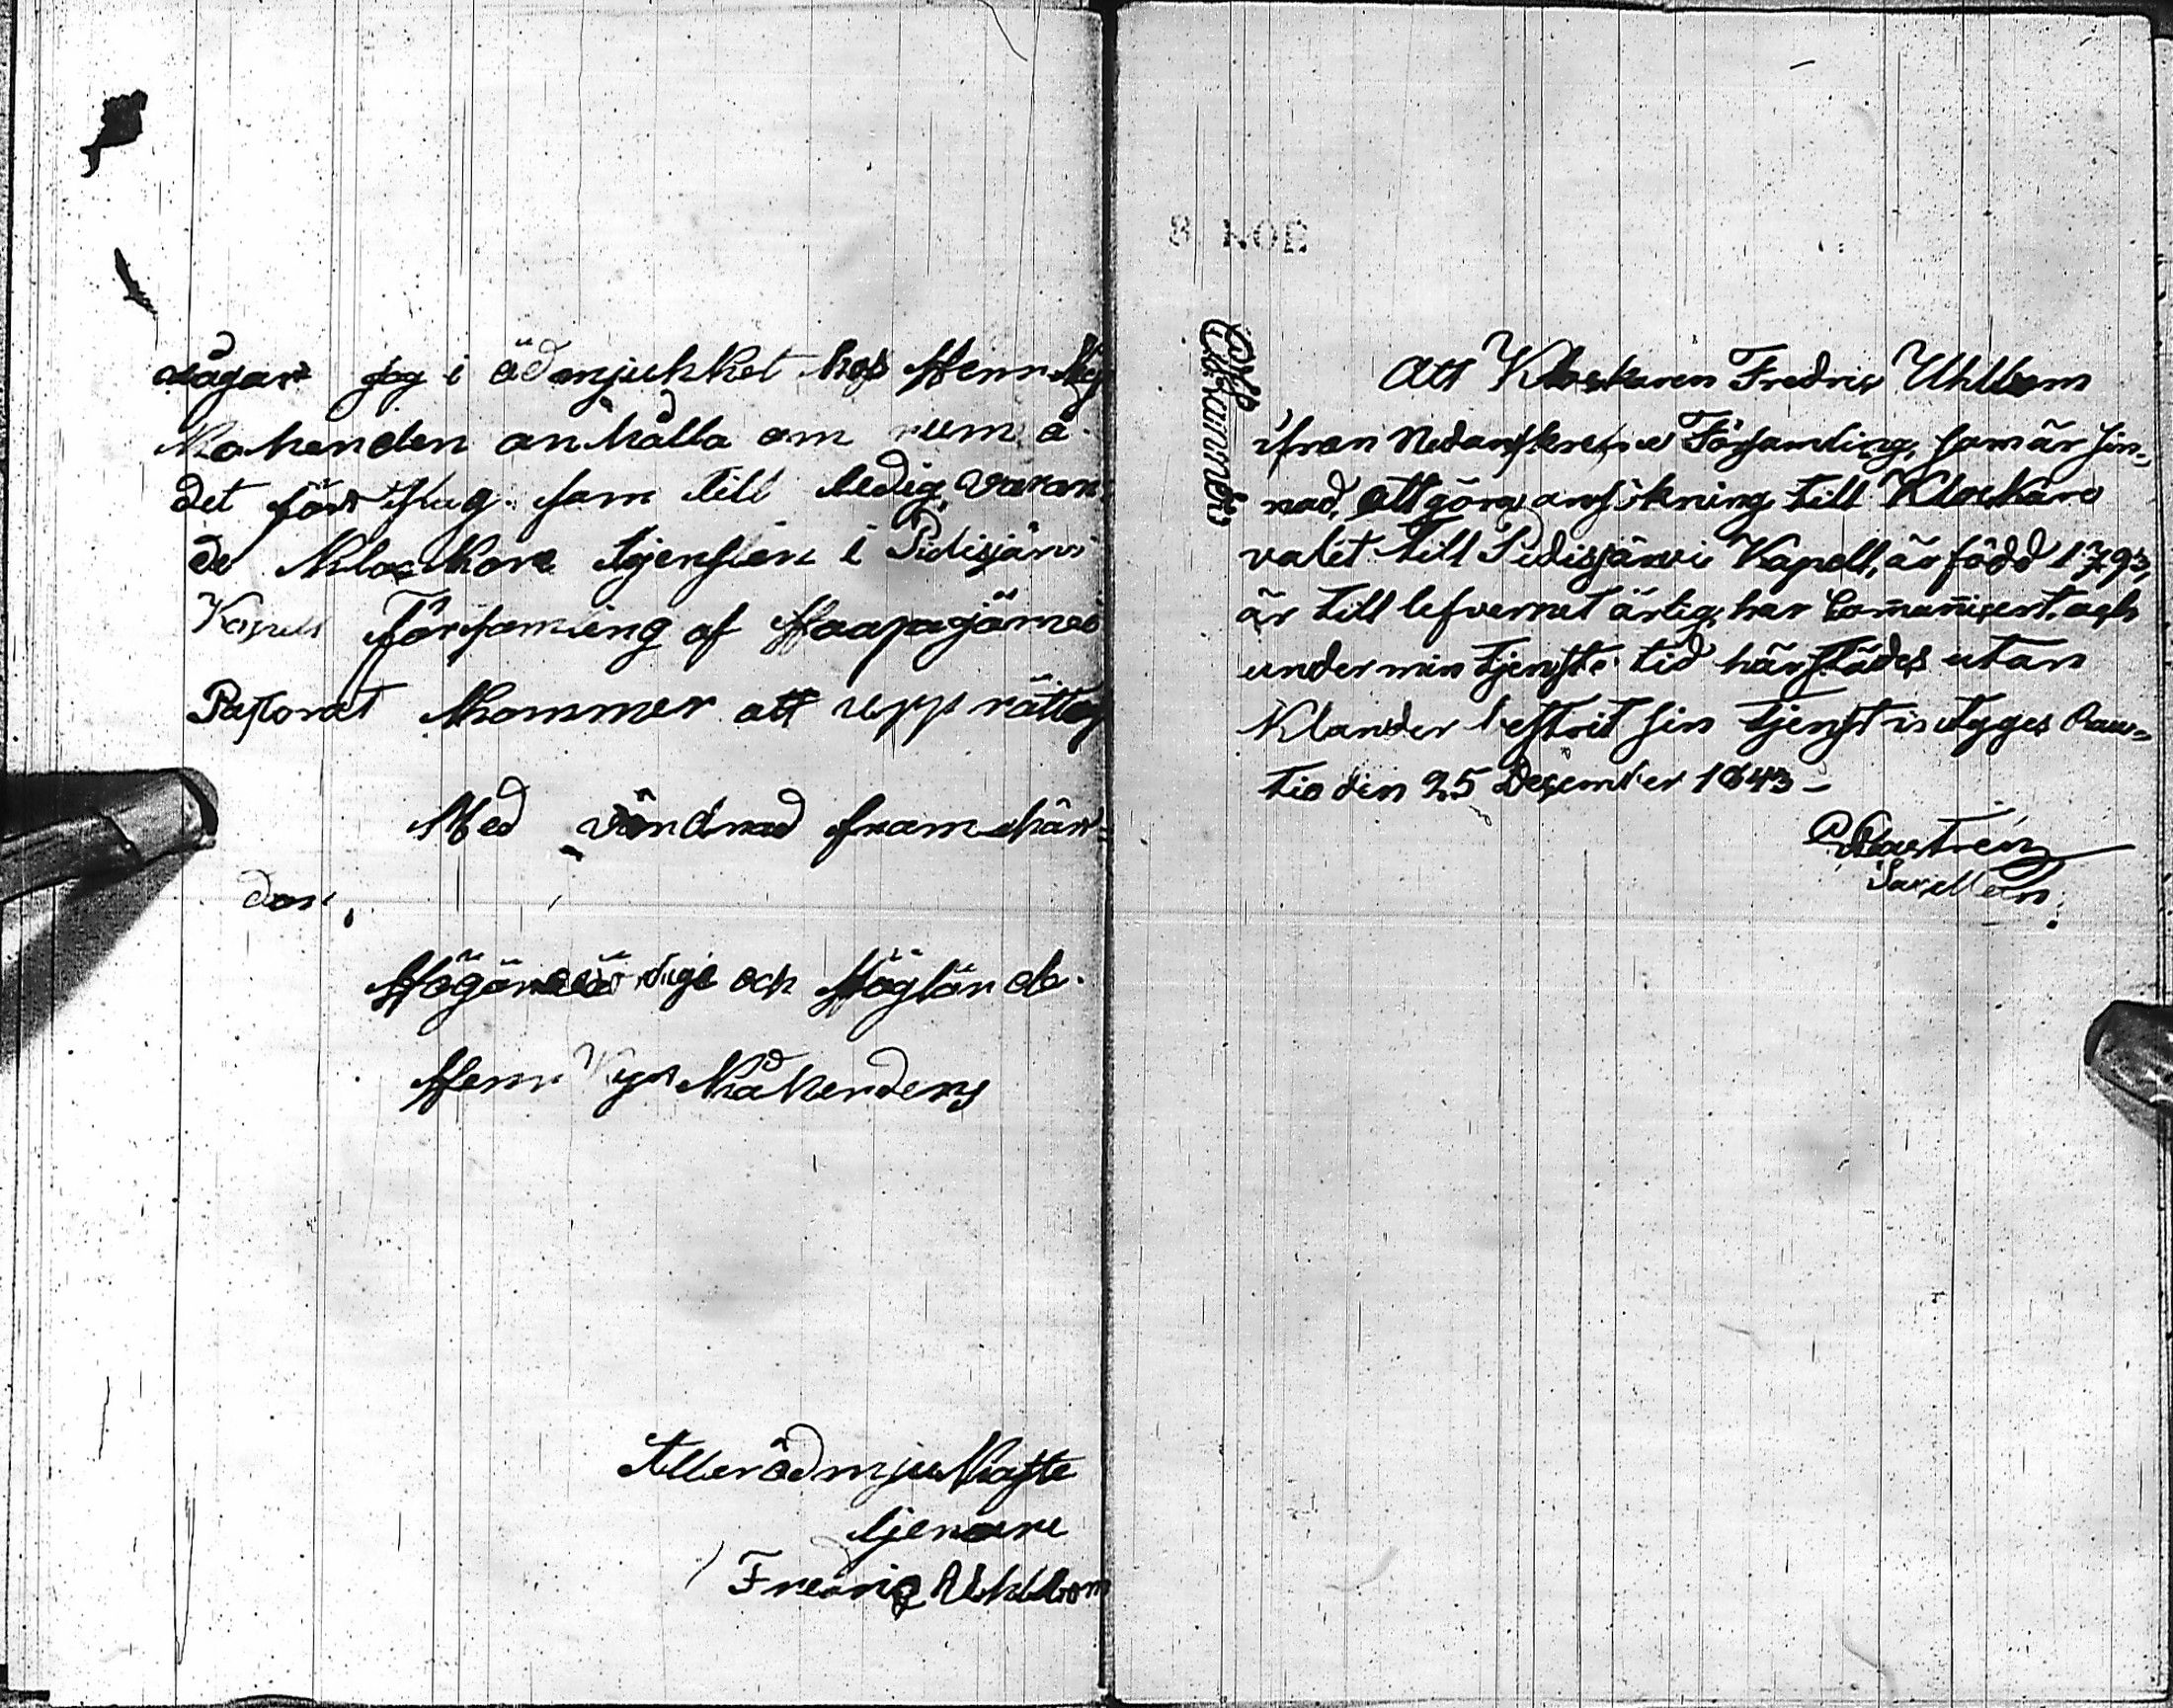 vågar jag i ödmjukhet hos Herr Kyr
kohenden anhålla om rum å
det förslag som till ledig varan
de Klockare tjensten i Pidisjärvi
Kapell Församling af Haapajärvi
Pastorat kommer att upprättas
Med vördnad framhär=
dar,
Högärevördige och Höglärde
Herr Kyrkoherdens
Allerödmjukaste
tjenare
Fredric Uhlbom
Att Klockaren Fredric Uhlbom
ifrån Nedanskrefne Församling, som är sin=
nad, att göra ansökning till Klockare
valet till Pidisjärvi Kapell, är född 1793,
är till lefvernet ärlig, har Communicerat och
under min tjenste tid härstädes utan
Klander bestrit sin tjenst intygges Rau=
tio den 25 December 1843 –
P. Castrén
Sacellan.